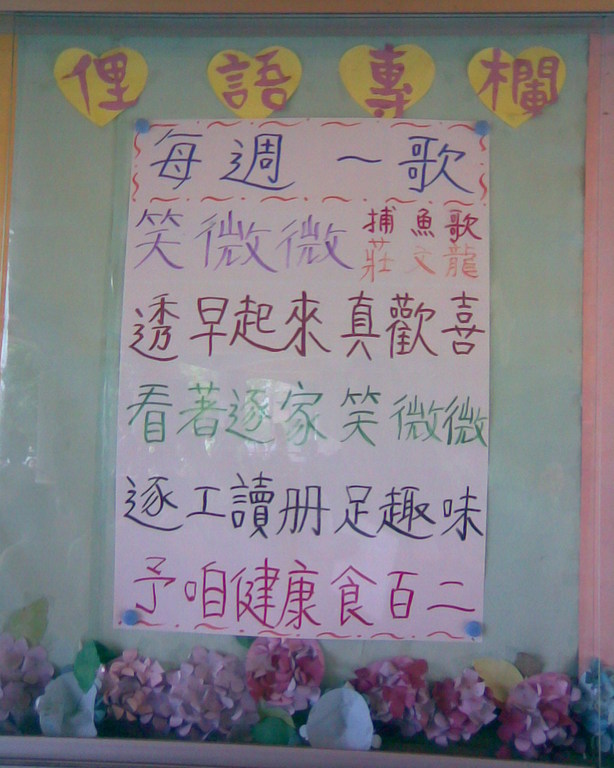 俚語專欄
每週一歌
笑微微 捕魚歌
莊文龍
透早起來真歡喜
看著逐家笑微微
逐工讀册足趣味
予咱健康食百二